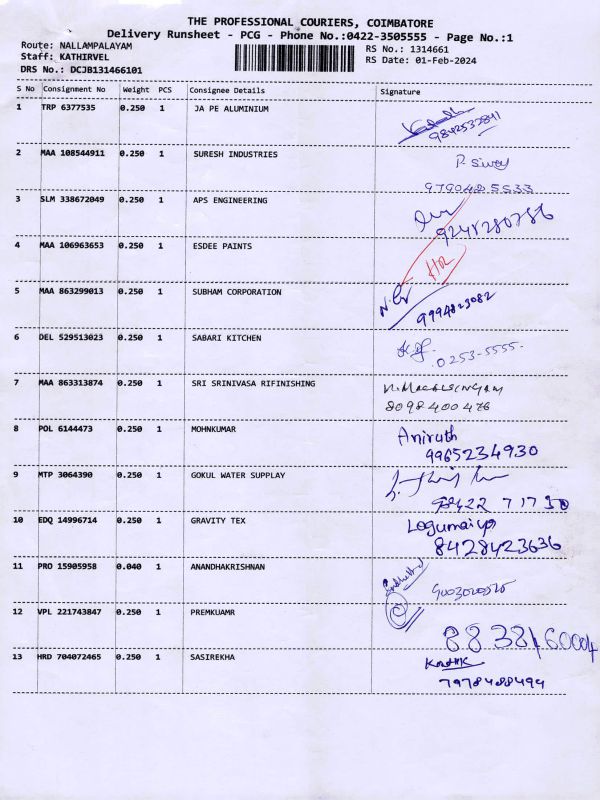 THE PROFESSIONAL COURIERS, COIMBATORE
Delivery Runsheet - PCG - Phone No.:0422-3505555 - Page No.:1
Route: NALLAMPALAYAM
RS No.: 1314661
Staff: KATHIRVEL
RS Date: 01-Feb-2024
DRS No.: DCJB131466101
S No Consignment No Weight PCS Consignee Details Signature
1 TRP 6377535 0.250 1 JA PE ALUMINIUM
9842532841
2 MAA 108544911 0.250 1 SURESH INDUSTRIES
3 SLM 338672049 0.250 1 APS ENGINEERING
9241280786
4 MAA 106963653 0.250 1 ESDEE PAINTS
5 MAA 863299013 0.250 1 SUBHAM CORPORATION
9994823082
6 DEL 529513023 0.250 1 SABARI KITCHEN
0253-5555-
7 MAA 863313874 0.250 1 SRI SRINIVASA RIFINISHING
8098400476
8 POL 6144473 0.250 1 MOHNKUMAR Aniruth
9965234930
9 MTP 3064390 0.250 1 GOKUL WATER SUPPLAY
98422 71730
10 EDQ 14996714 0.250 1 GRAVITY TEX
8428423636
11 PRO 15905958 0.040 1 ANANDHAKRISHNAN
12 VPL 221743847 0.250 1 PREMKUAMR
13 HRD 704072465 0.250 1 SASIREKHA
7978488494